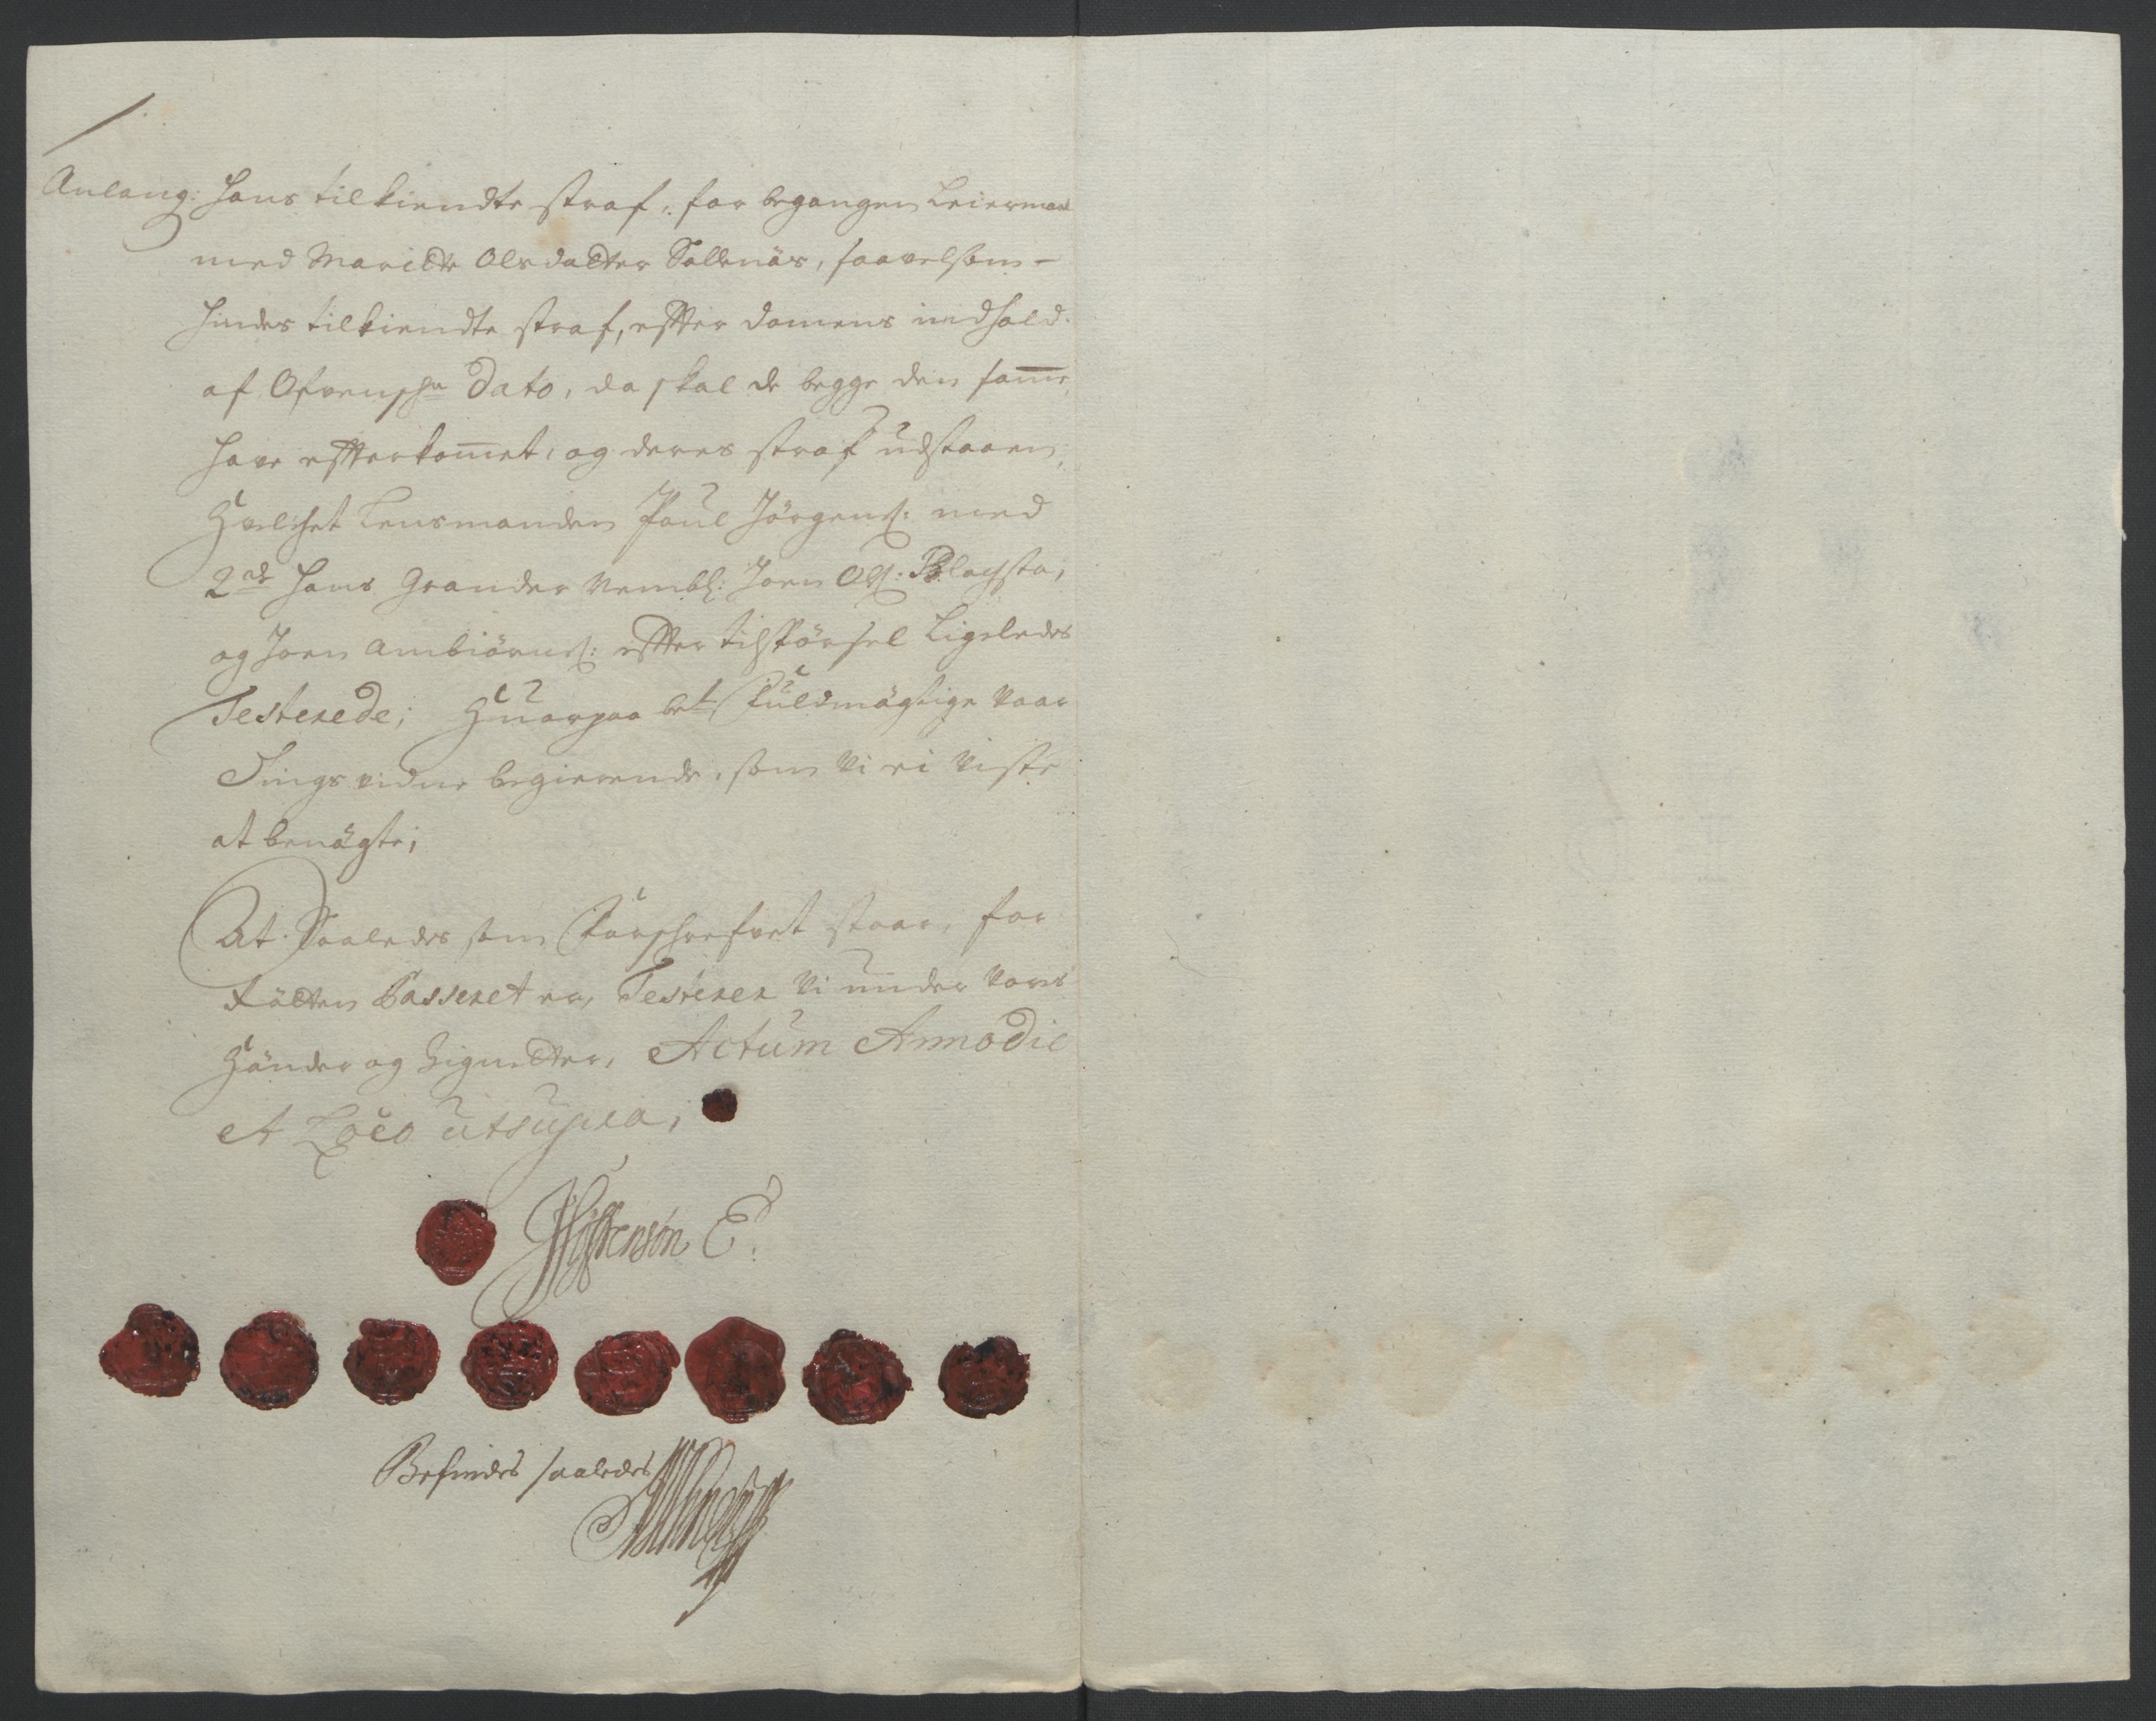 Anlang: hans tilkiendte straf, for begangen Leiermaal
med Maritte Olsdatter Sollnäs, saavelsom -
hindes tilkiendte straf, effter domens indhold
af Ofvensch: Dato, da skal de begge den samme
have effterkommet, og deres straf udstaaen,
Hvelchet Lensmanden Poul Jörgens: med
2de hans Grander Nembl: Joen Ols: Blachsta,
og Joen Ambiörns: effter tilspörsel Ligeledes
Testerede; Huorpaa bete fuldmägtige voar
Tings vidne begierende, som vi ei viste
at benägte;
At Saaledes som forschrefvet staar, for
Rätten Passeret er, Testerer vi under vores
Hænder og Signetter, Actum Anno die
et Loco utsupra;
Befindes saaledes